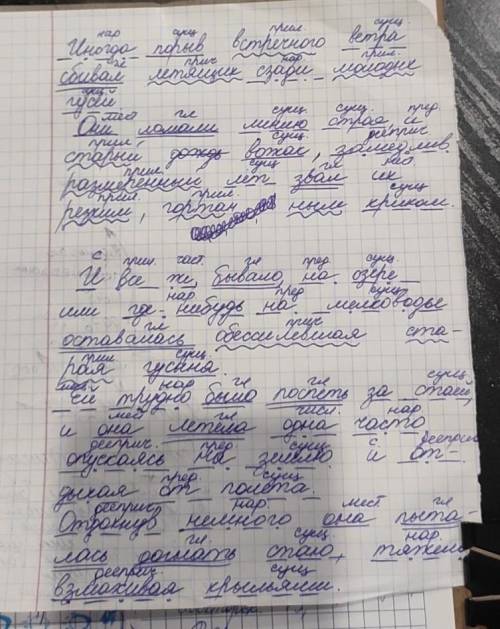 нар сущ прил сущ.
Иногда порыв встречного ветра
гл прич нар прил.
сбивал летящих сзади молодых
сущ
гусей
мест гл сущ сущ. пред.
Они ломали линию строя, и
прил сущ дееприч
старый дождь вожак, замедлив
прил. сущ гл мест
размеренный лёт звал их
прил. прил. сущ
резким, гортан ным криком.
с прил. част. гл пред. сущ.
И все же, бывало, на озере
нар пред сущ.
или где нибудь на мелководье
гл прич
оставалась обессилевшая ста-
прил сущ.
рая гусыня.
мест нар гл гл сущ.
Ей трудно было поспеть за стаей,
мест гл числ. нар
и она летела одна часто
дееприч. пред. сущ. с дееприч
опускаясь на землю и от-
пред. сущ.
дыхая от полета.
дееприч. нар. мест гл
Отдохнув немного она пыта-
гл сущ нар.
лась догнать стаю, тяжело
дееприч сущ
взмахивая крыльями.